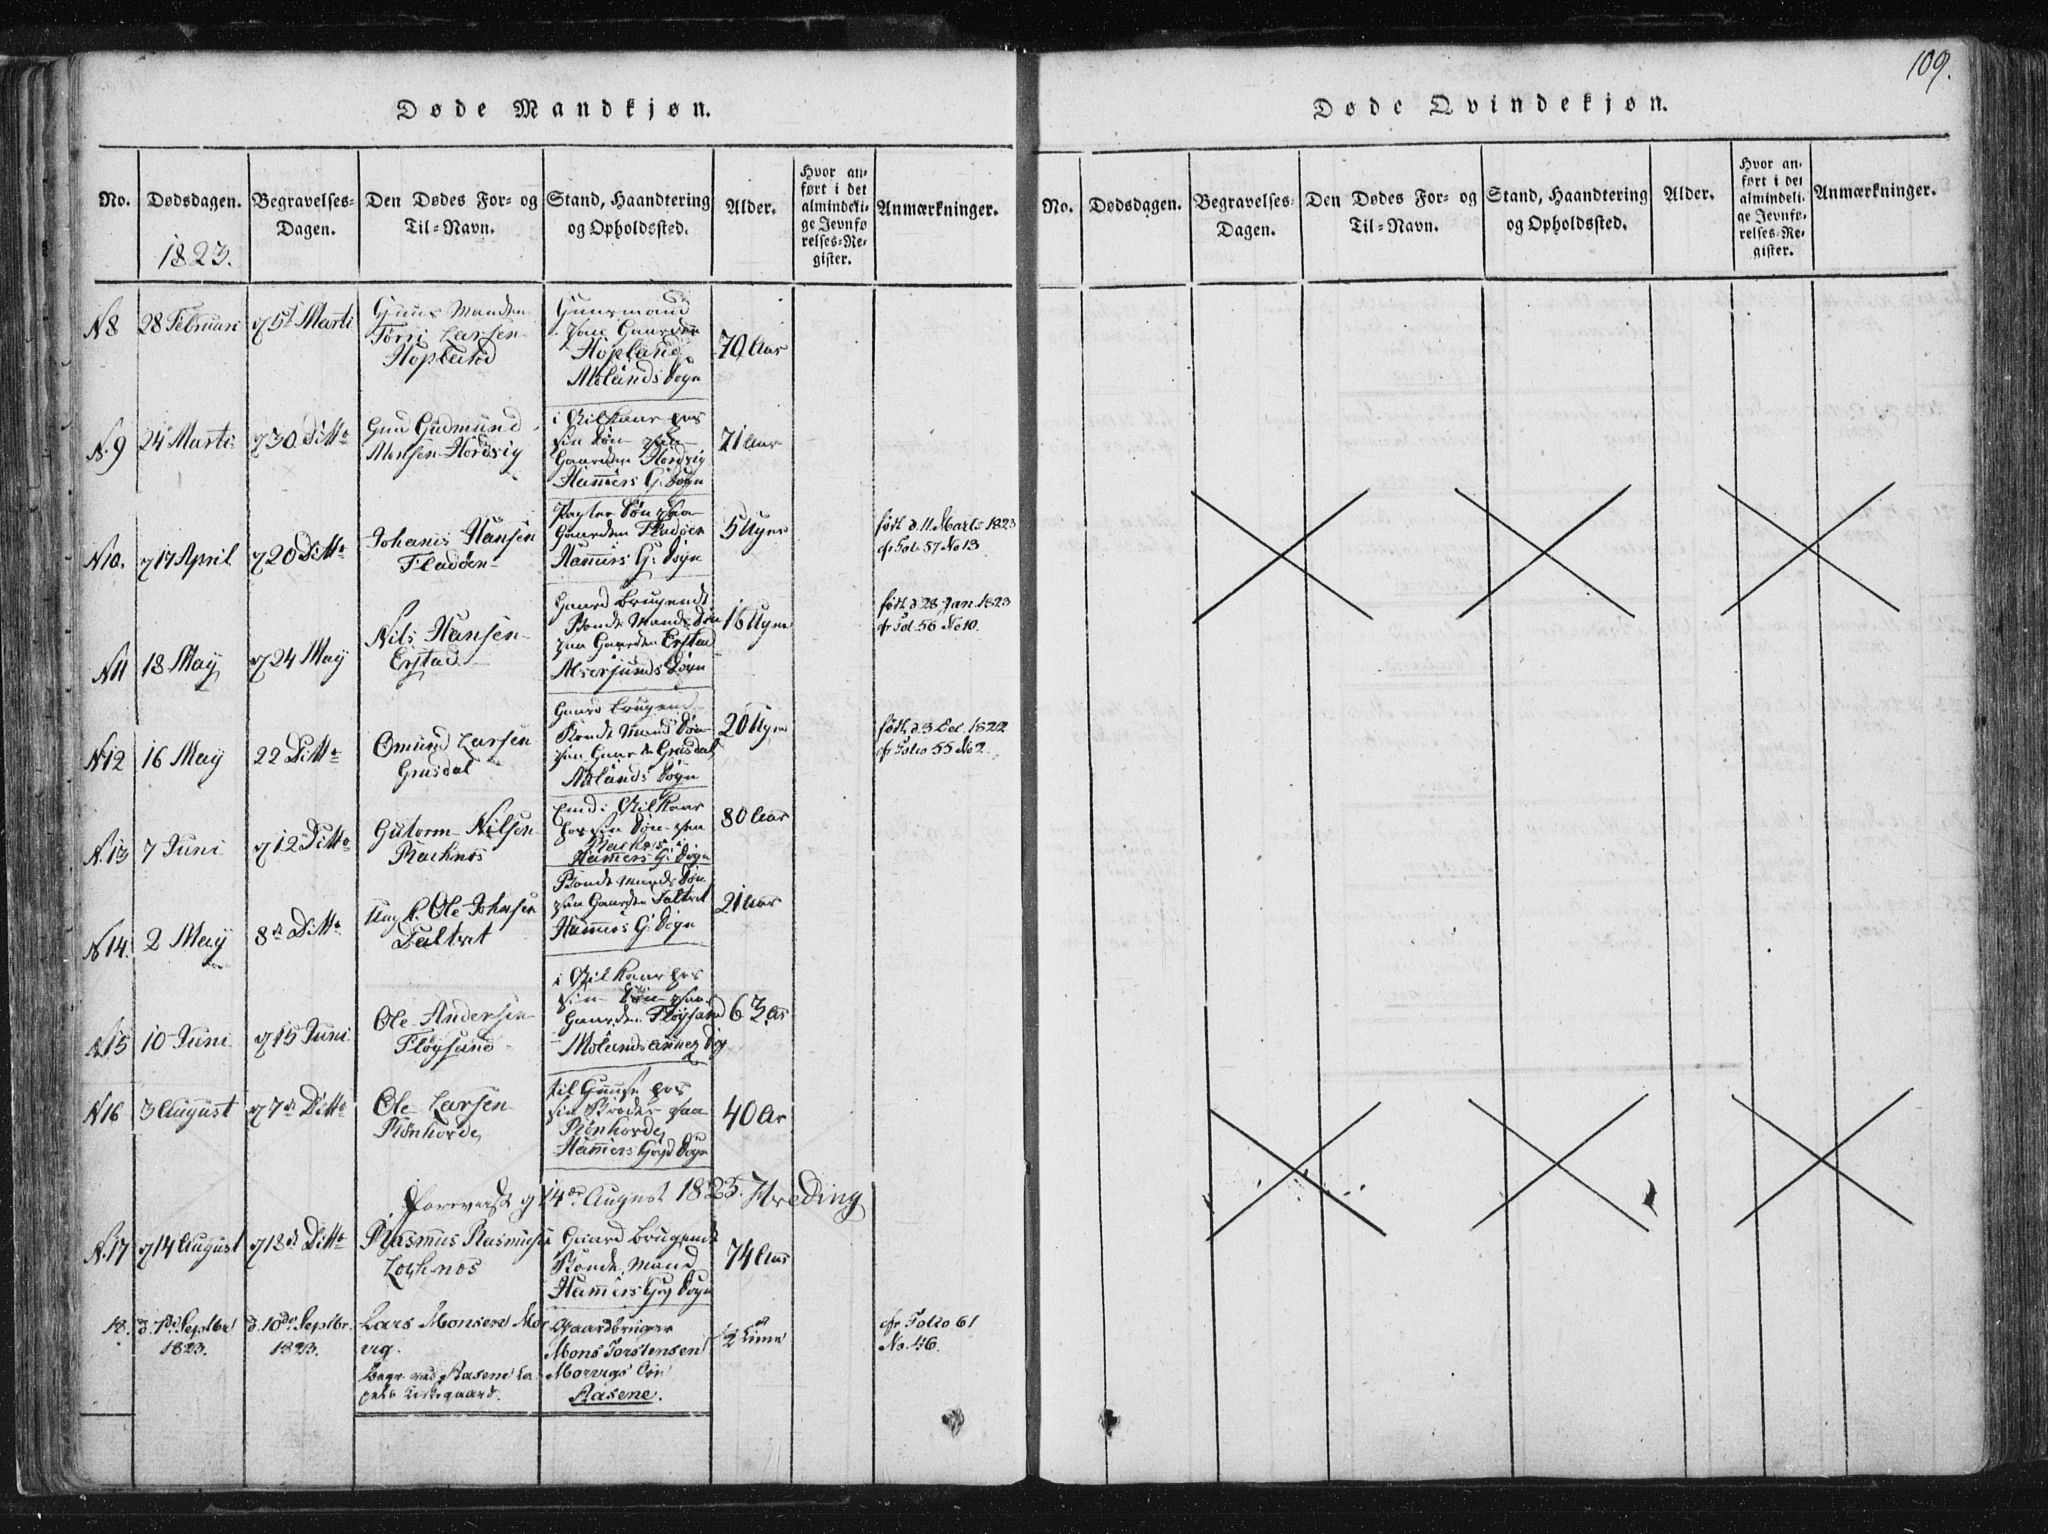 109.
Døde Mandkjøn.
No.
Dødsdagen.
1823.
Begravelses-
Dagen.
Den Dødes For- og
Til-Navn.
Stand, Haandtering
og Opholdssted.
Alder.
Hvor an-
ført i det
almindeli-
ge Jevnfø-
relses-Re-
gister.
Anmærkninger.
N 8
28 Februari
5 Marti
Torri Larsen
Hopland
Gaarden
Hopland
Sogn
70 Aar
N. 9
24 Marti
30 Ditto
Gudmund
Monsen Hordvig
i Vilkaar hos
sin Søn paa
Gaarden Hordvig
Hammers G: Sogn
71 Aar
N10.
17 April
20 Ditto
Johanis Hansen
Fladøen
Søn paa
Gaarden Fladøen
Hammers G: Sogn
5 Uger
født d. 11 Marts 1823
cfr Fol. 57 No 13
N 11
18 May
24 May
Nils Hansen
Erstad
Gaard brugende
Bonde Mands Søn
paa Gaarden Erstad
Alversunds Sogn
16 Uger
født d 28 Jan. 1823
cfr Fol. 56 No 10.
N12
16 May
22 Ditto
Omund Larsen
Grusdal
Gaard brugend
Bonde Mand Søn
paa Gaarden Grusdal
Sogn
20 Uger
født d. 3 Dec. 1822
cfr Folio 55 No 2.
N. 13
7 Juni
12 Ditto
Gutorm Nilsen
Racknes
i Vilkaar
hos sin Søn paa
Racknes
Hamers G: Sogn
80 Aar
N 14.
2 May
8de Ditto
Ungk. Ole Johnsen
Bonde Mands Søn
paa Gaarden
Hammers G: Sogn
21 Aar
N15
10 Juni
15 Juni
Ole Andersen
Fløysand
i Vilkaar hos
sin Søn paa
Gaarden Fløysand
annex Sog
63 Aar
N16
3 August
7de Ditto
Ole Larsen
Rønhovde
hos
sin Broder paa
Rønhovde
Hammers Sogn
40 Ar
14de August 1823. Hveding
N. 17
14 August
18de Ditto
Rasmus Rasmusen
Gaard brugende
Bonde Mand
Hammers Sogn
74 Aar
18.
d. 7de Septbr
1823.
d. 10de Septbr.
1823.
Lars Monsen Mor
vig.
Begr. ved Aasene Ca
pels Kirkegaard.
Gaardbruger
Mons Torstensen
Morvigs Søn
Aasene.
1/2 Time
cfr Folio 61
No. 46.
Døde Qvindekjøn.
No.
Dødsdagen.
Begravelses-
Dagen.
Den Dødes For- og
Til-Navn.
Stand, Haandtering
og Opholdssted.
Alder.
Hvor an-
ført i det
almindeli-
ge Jevnfø-
relses-Re-
gister.
Anmærkninger.